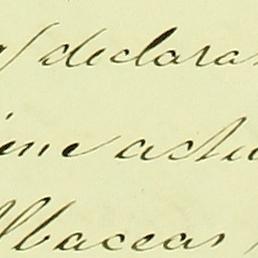 declara
ime actu
Albaceas,